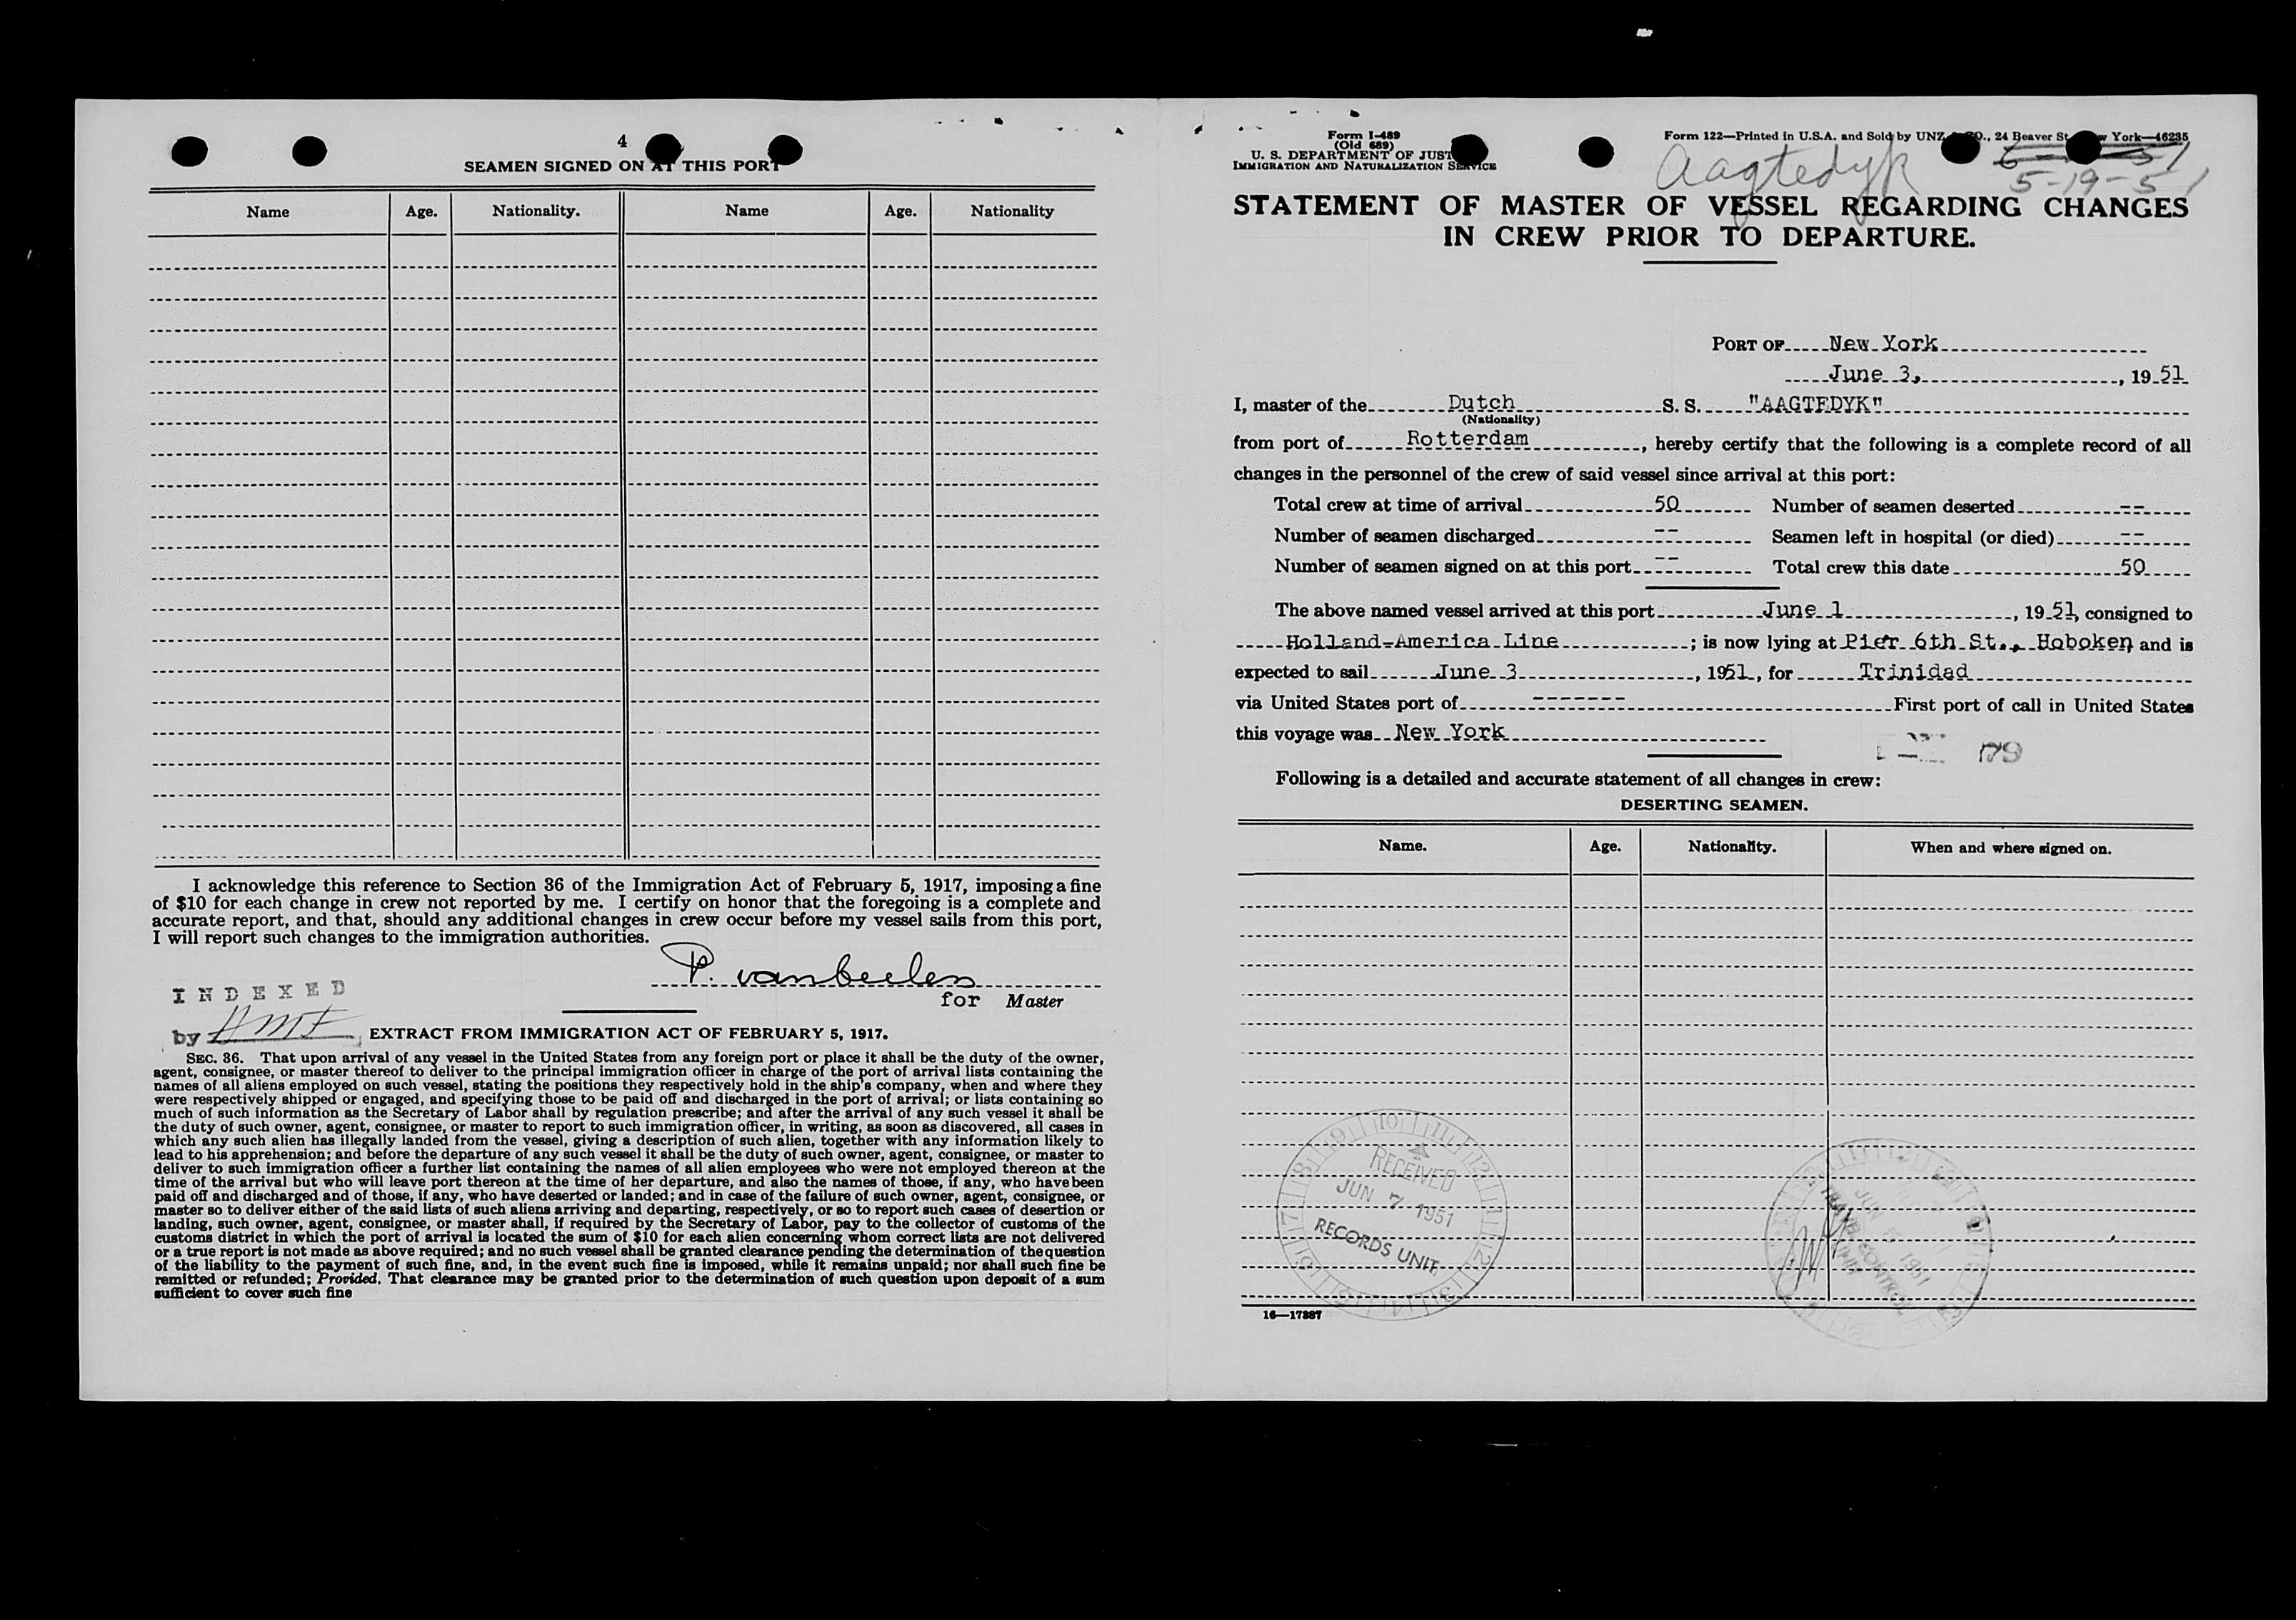 4
SEAMEN SIGNED ON AT THIS PORT
Name Age. Nationality. Name Age. Nationality
I acknowledge this reference to Section 36 of the Immigration Act of February 5, 1917, imposing a fine
of $10 for each change in crew not reported by me. I certify on honor that the foregoing is a complete and
accurate report, and that, should any additional changes in crew occur before my vessel sails from this port,
I will report such changes to the immigration authorities.
P. van beelen
for Master
INDEXED
by HMF
EXTRACT FROM IMMIGRATION ACT OF FEBRUARY 5, 1917.
SEC. 36. That upon arrival of any vessel in the United States from any foreign port or place it shall be the duty of the owner,
agent, consignee, or master thereof to deliver to the principal immigration officer in charge of the port of arrival lists containing the
names of all aliens employed on such vessel, stating the positions they respectively hold in the ship's company, when and where they
were respectively shipped or engaged, and specifying those to be paid off and discharged in the port of arrival; or lists containing so
much of such information as the Secretary of Labor shall by regulation prescribe; and after the arrival of any such vessel it shall be
the duty of such owner, agent, consignee, or master to report to such immigration officer, in writing, as soon as discovered, all cases in
which any such alien has illegally landed from the vessel, giving a description of such alien, together with any information likely to
lead to his apprehension; and before the departure of any such vessel it shall be the duty of such owner, agent, consignee, or master to
deliver to such immigration officer a further list containing the names of all alien employees who were not employed thereon at the
time of the arrival but who will leave port thereon at the time of her departure, and also the names of those, if any, who have been
paid off and discharged and of those, if any, who have deserted or landed; and in case of the failure of such owner, agent, consignee, or
master so to deliver either of the said lists of such aliens arriving and departing, respectively, or so to report such cases of desertion or
landing, such owner, agent, consignee, or master shall, if required by the Secretary of Labor, pay to the collector of customs of the
customs district in which the port of arrival is located the sum of $10 for each alien concerning whom correct lists are not delivered
or a true report is not made as above required; and no such vessel shall be granted clearance pending the determination of the question
of the liability to the payment of such fine, and, in the event such fine is imposed, while it remains unpaid; nor shall such fine be
remitted or refunded; Provided, That clearance may be granted prior to the determination of such question upon deposit of a sum
sufficient to cover such fine
Form I-489
(Old 689)
U. S. DEPARTMENT OF JUST
IMMIGRATION AND NATURALIZATION SERVICE
Form 122—Printed in U.S.A. and Sold by UNZ CO., 24 Beaver St York—46235
Aagtedyk
5-19-51
STATEMENT OF MASTER OF VESSEL REGARDING CHANGES
IN CREW PRIOR TO DEPARTURE.
PORT OF New York
June 3, , 1951
I, master of the Dutch S. S. "AAGTEDYK"
(Nationality)
from port of Rotterdam , hereby certify that the following is a complete record of all
changes in the personnel of the crew of said vessel since arrival at this port:
Total crew at time of arrival 50 Number of seamen deserted --
Number of seamen discharged -- Seamen left in hospital (or died) --
Number of seamen signed on at this port -- Total crew this date 50
The above named vessel arrived at this port June 1 , 1951, consigned to
Holland-America Line ; is now lying at Pier 6th St., Hoboken and is
expected to sail June 3 , 1951, for Trinidad
via United States port of ------- First port of call in United States
this voyage was New York
179
Following is a detailed and accurate statement of all changes in crew:
DESERTING SEAMEN.
Name. Age. Nationality. When and where signed on.
RECEIVED
JUN 7 1951
RECORDS UNIT
JUN 1951
CONTROL
UNIT
16—17387